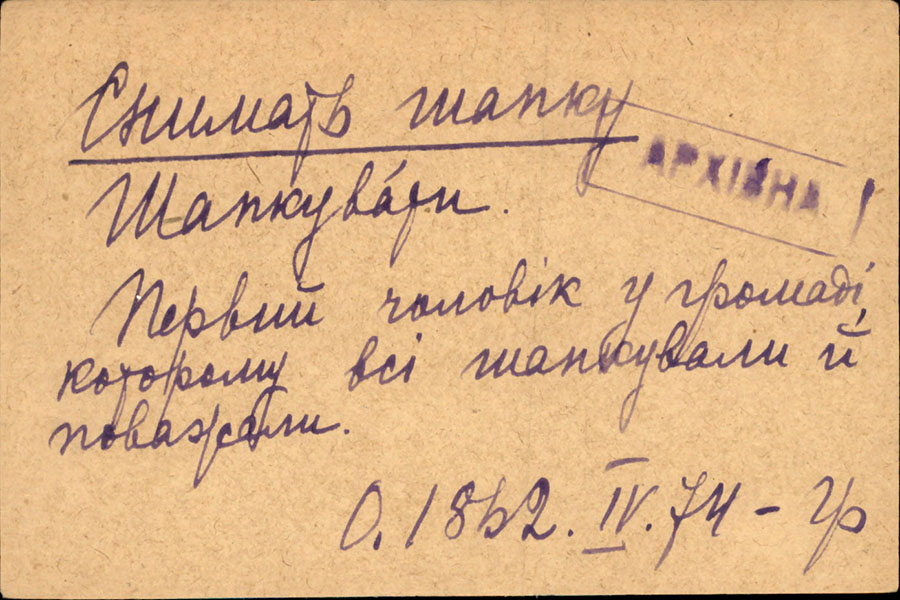 Снимать шапку
АРХІВНА
Шапкува́ти.
Первий чоловік у громаді,
которому всі шапкували й
поважали.
О. 1862. IV. 74 – Гр